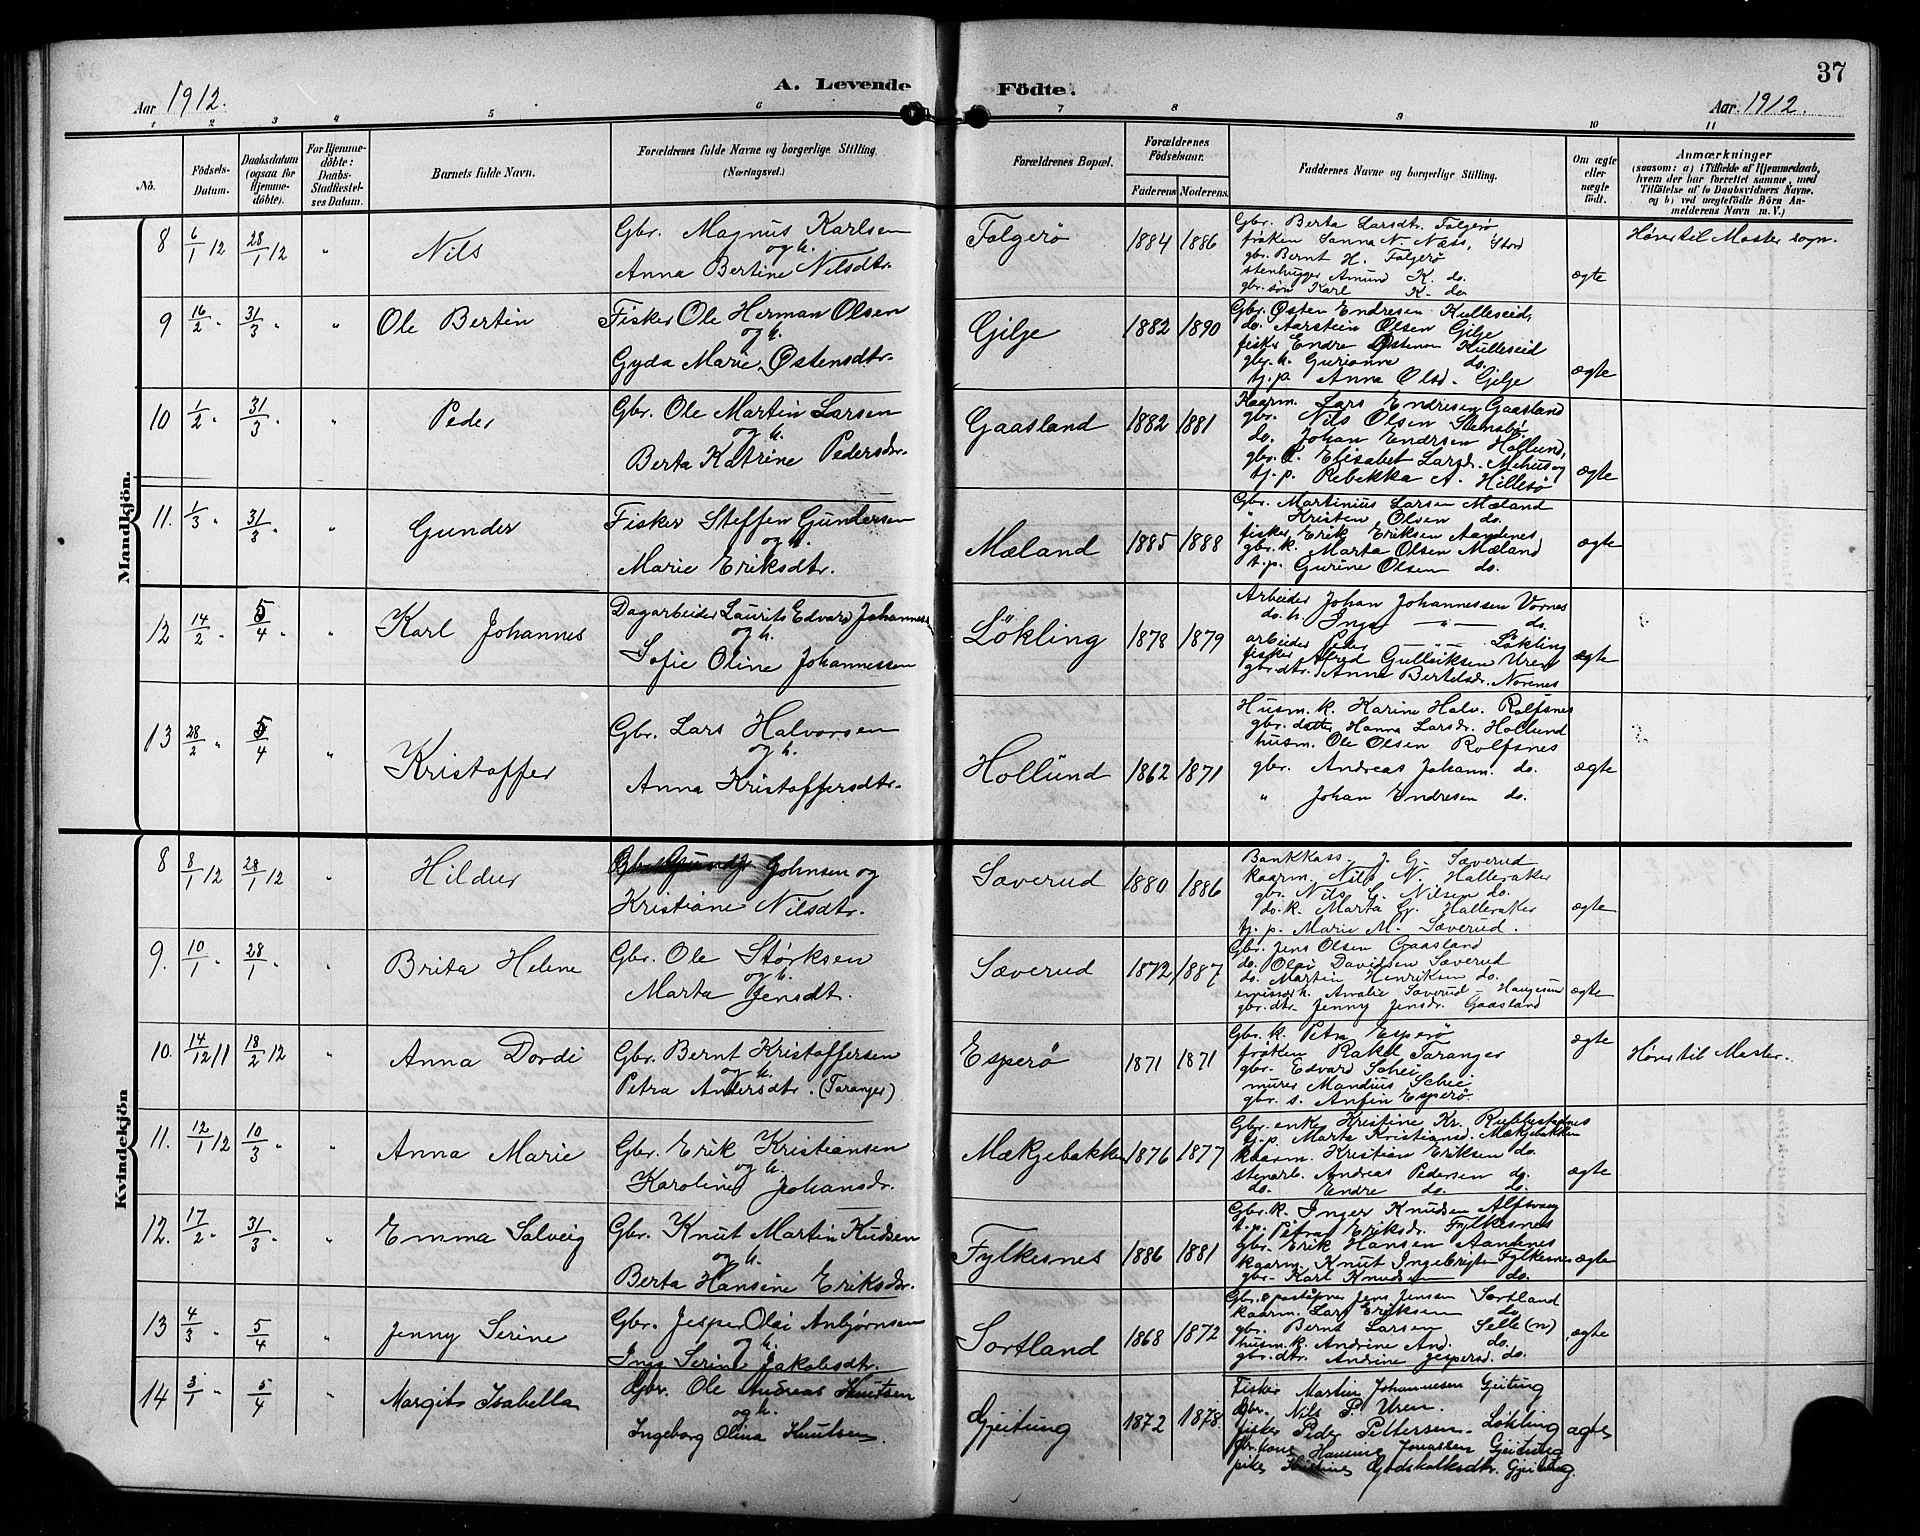 37
Aar 1912.
A. Levende Födte.
Aar 1912.
1 2 3 4 5 6 7 8 9 10 11
No.
Födsels-Datum.
Daabsdatum (ogsaa for Hjemmedöbte).
For Hjemmedöbte: Daabs-Stadfæstelses Datum.
Barnets fulde Navn.
Forældrenes fulde Navne og borgerlige Stilling. (Næringsvei.)
Forældrenes Bopæl.
Forældrenes Födselsaar.
Faderens Moderens
Faddernes Navne og borgerlige Stilling.
Om ægte eller uægte födt.
Anmærkninger
(saasom: a) i Tilfælde af Hjemmedaab,
hvem der har forrettet samme, med
Tilföielse af to Daabsvidners Navne,
og b) ved uægtefödte Börn Anmelderens Navn m. V.)
Mandkjön.
8 6/1 12 28/1 12 " Nils
Gbr. Magnus Karlsen
og h.
Anna Bertine Nilsdtr.
Folgerø 1884 1886
Gbr. Berta Larsdtr. Folgerø
frøken Sanna N. Næss, Stord
gbr. Bernt H. Folgerø
stenhugger Amund K. do.
gbr. søn Karl K. do
ægte
Hører til Moster sogn.
9 16/2 " 31/3 " " Ole Bertin
Fisker Ole Herman Olsen
og h.
Gyda Marie Østensdtr.
Gilje 1882 1890
Gbr. Østen Endresen Kulleseid,
do. Aarstein Olsen Gilje
fisker Endre Østensen Kulleseid
gbr. h. Gurianna do.
tj. p. Anna Olsd. Gilje
ægte
10 1/2 " 31/3 " " Peder
Gbr. Ole Martin Larsen
og h.
Berta Katrine Pedersdr.
Gaasland 1882 1881
Kaarm. Lars Endresen Gaasland
gbr. Nils Olsen Stensbø,
do. Johan Endrsen Hollund,
gbr. k. Elisabet Larsd. Mehus og
tj. p. Rebekka A. Hillesø
ægte
11. 1/3 " 31/3 " " Gunder
Fisker Steffen Gundersen
og h.
Marie Eriksdtr.
Mæland 1885 1888
Gbr. Martinius Larsen Mæland
" Kristen Olsen do.
fisker Erik Eriksen Aandenes
gbr. k. Marta Olsen Mæland
t. p. Gurine Olsen do.
ægte
12 14/2 " 5/4 " " Karl Johannes
Dagarbeider Laurits Edvard Johannes.
og h.
Sofie Oline Johannessen
Løkling 1878 1879
Arbeider Johan Johannessen Vornes
do. h. Inga — " — do.
arbeider Peder — Løkling
fisker Alfred Gullriksen Uren
gbr. dtr. Anna Bertelsdr. Norenes
ægte
13 28/2 " 5/4 " Kristoffer
Gbr. Lars Halvorsen
og h.
Anna Kristoffersdtr.
Hollund 1862 1871
Husm. k. Karine Halv. Rolfsnes
gbr. datter Hanna Larsdr. Hollund
husm. Ole Olsen Rolfsnes
gbr. Andreas Johann. do.
" Johan Endresen do.
ægte
Kvindekjön
8 8/1 12 28/1 12 " Hildur
Gbr. Johnsen og
Kristiane Nilsdtr.
Sæverud 1880 1886
Bankkass. J. G. Sæverud
kaarm. Nils N. Halleraker
gbr. Nils G. Nilsen do.
do. k. Marta G. Halleraker
tj. p. Marie M. Sæverud.
ægte
9. 10/1 " 28/1 " " Brita Helene
Gbr. Ole Størksen
og h.
Marta Jensdtr.
Sæverud 1872 1887
Gbr. Jens Olsen Gaasland
do. Olai Davidsen Sæverud
do. Martin Henriksen do.
emissær h. Amalie Sæverud - Haugesun
gbr. dtr. Jenny Jensdr. Gaasland
ægte
10. 14/12 11 18/2 12 " Anna Dordi
Gbr. Bernt Kristoffersen
og h.
Petra Andersdtr. (Taranger)
Esperø 1871 1871
Gbr. k. Petra Esperø
frøken Rakel Taranger
gbr. Edvard Schei
murer Mandius Schei
gbr. s. Anfin Esperø.
ægte
Hører til Moster.
11. 12/1 12 10/3 " " Anna Marie
Gbr. Erik Kristiansen
og h.
Karoline Johansdr.
Mækjebakken 1876 1877
Gbr. enke Kristine Kr. Rubbestadnes
tj. p. Marta Kristiansd. Mækjebakken
kaarm. Kristian Eriksen do.
stenarb. Andreas Pedersen do.
do. Endre do. do.
ægte
12. 17/2 " 31/3 " " Emma Solveig
Gbr. Knut Martin Kudsen
og h.
Berta Hansine Eriksdr.
Fylkesnes 1886 1881
Gbr. k. Inger Knudsen Alfsvaag
t. p. Petra Eriksdr. Fylkesnes
gbr. Erik Hansen Aandenes
kaarm. Knut Ingebrigtsn Fylkesnes
gbr. Karl Knudsen do.
ægte
13 4/3 " 5/4 " Jenny Serine
Gbr. Jesper Olai Anbjørnsen
og h.
Inga Serine Jakobsdtr.
Sortland 1868 1872
Gbr. & postaabner Jens Jensen Sortland
kaarm. Lars Eriksen do.
gbr. Bernt Larsen Selle (n)
husm. k. Andrine And. do.
gbr. dtr. Andrine Jespersd. do.
ægte
14 3/1 " 5/4 " Margit Isabella
Gbr. Ole Andreas Knutsen
og h.
Ingeborg Olina Knutsen.
Gjeitung 1872 1878.
Fisker Martin Johannesen Gjeitung
Gbr. Nils P. Uren.
fisker Peder Pettersen. Løkling
Gbr. kone Hansine Jonassen Gjeitung
pike Kristine Godskalksdtr. Gjeitung.
ægte